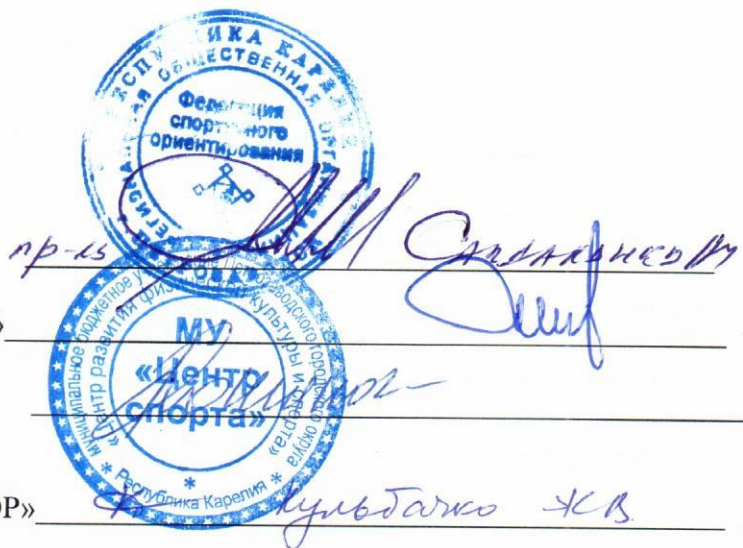 РЕСПУБЛИКА КАРЕЛИЯ
РЕГИОНАЛЬНАЯ ОБЩЕСТВЕННАЯ ОРГАНИЗАЦИЯ
Федерация
спортивного
ориентирования
пр-ль
»
муниципальное бюджетное учреждение Петрозаводского городского округа
«Центр развития физической культуры и спорта»
МУ
«Центр
спорта»
* Республика Карелия *
ОР» Кульбачко Ж.В.